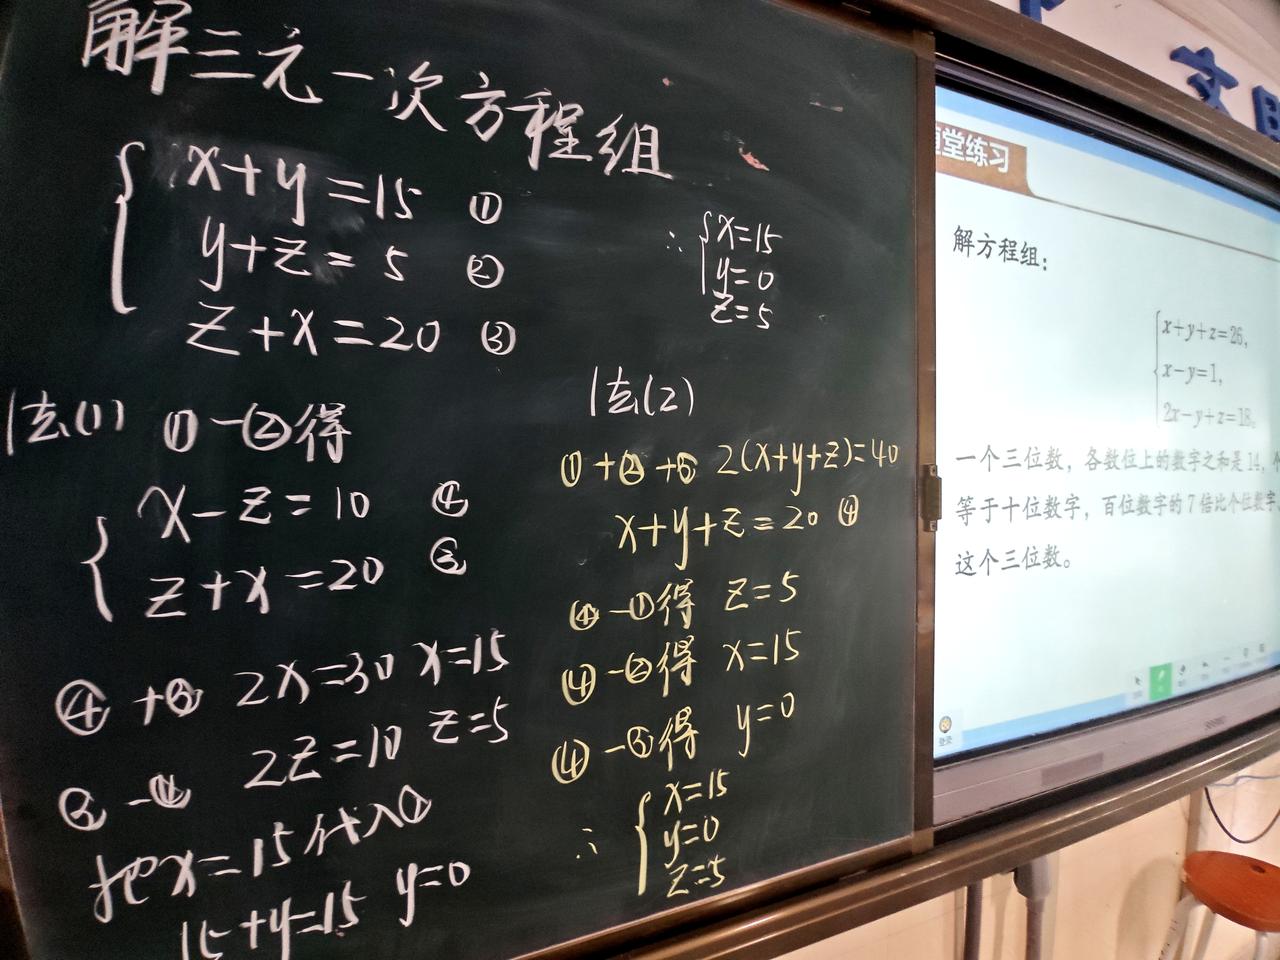 解三元一次方程组
x+y=15 ①
y+z=5 ②
z+x=20 ③
∴ x=15
y=0
z=5
法(1) ①-②得
x-z=10 ④
z+x=20 ③
④+③ 2x=30 x=15
③-④ 2z=10 z=5
把x=15代入①
15+y=15 y=0
法(2)
①+②+③ 2(x+y+z)=40
x+y+z=20 ④
④-①得 z=5
④-②得 x=15
④-③得 y=0
∴ x=15
y=0
z=5
堂练习
解方程组:
x+y+z=26,
x-y=1,
2x-y+z=18。
一个三位数，各数位上的数字之和是14，
等于十位数字，百位数字的7倍比个位数字
这个三位数。
登录
文